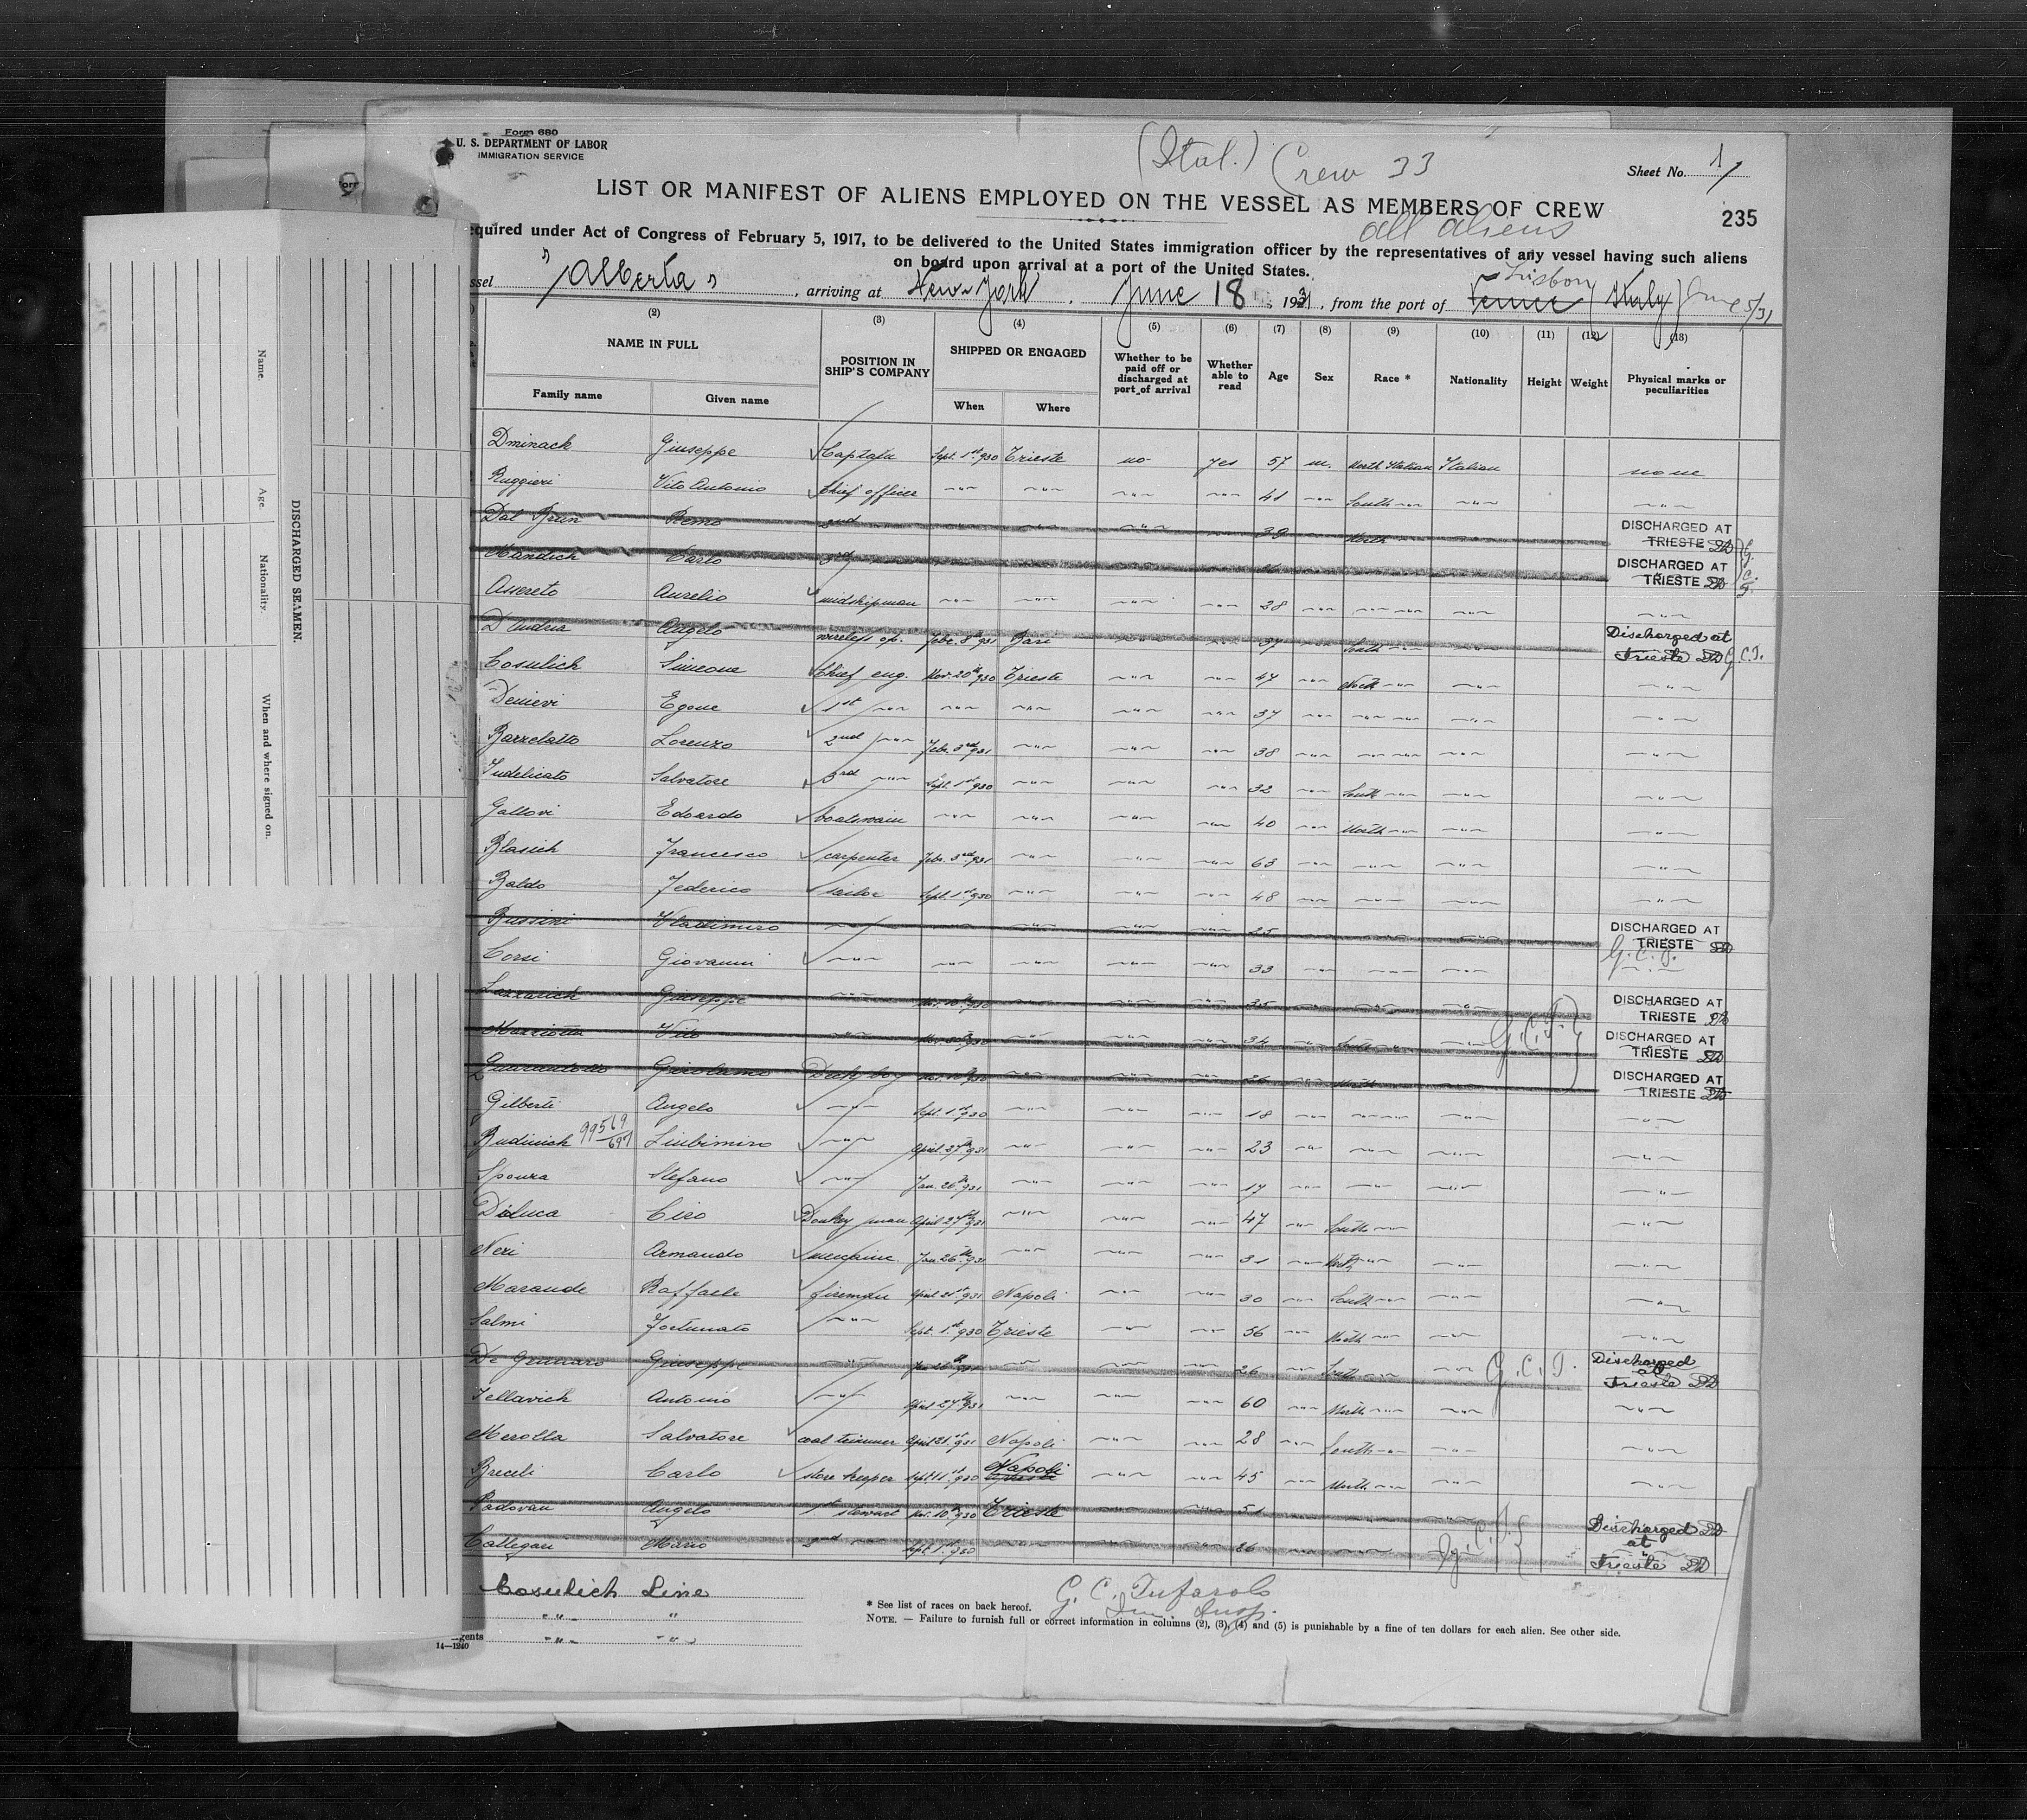 Form 680
U. S. DEPARTMENT OF LABOR
IMMIGRATION SERVICE
(Ital.) Crew 33
all aliens
Sheet No. 1
LIST OR MANIFEST OF ALIENS EMPLOYED ON THE VESSEL AS MEMBERS OF CREW
235
quired under Act of Congress of February 5, 1917, to be delivered to the United States immigration officer by the representatives of any vessel having such aliens
on board upon arrival at a port of the United States.
ssel "Alberta", arriving at New-York, June 18 1931, from the port of Venice Lisbon (Italy) June 5/31
(2) (3) (4) (5) (6) (7) (8) (9) (10) (11) (12) (13)
NAME IN FULL POSITION IN SHIP'S COMPANY SHIPPED OR ENGAGED Whether to be paid off or discharged at port of arrival Whether able to read Age Sex Race * Nationality Height Weight Physical marks or peculiarities
Family name Given name When Where
Dminack Giuseppe Captain Sept. 1st 930 Trieste no yes 57 m. North Italian Italian none
Ruggieri Vito Antonio Chief officer -"- -"- -"- -"- 41 -"- South -"- -"- -"-
Dal Brun Remo 2nd -"- -"- -"- -"- 39 North DISCHARGED AT TRIESTE
Mandich Carlo 3rd -"- DISCHARGED AT TRIESTE
G. C. T.
Assereto Aurelio midshipman -"- -"- -"- -"- 28 -"- -"- -"- -"- -"-
D'Andria Angelo wireless op. Febr. 8th 931 Bari -"- -"- 37 -"- South -"- -"- Discharged at Trieste G.C.T.
Cosulich Simeone Chief eng. Nov. 20th 930 Trieste -"- -"- 47 -"- North -"- -"- -"-
Demevi Egone 1st -"- -"- -"- -"- -"- 37 -"- -"- -"- -"- -"-
Barzelatto Lorenzo 2nd -"- Febr. 3rd 931 -"- -"- -"- 38 -"- -"- -"- -"-
Indelicato Salvatore 3rd -"- Sept. 1st 930 -"- -"- -"- 32 -"- South -"- -"- -"-
Gallovi Edoardo boatswain -"- -"- -"- -"- 40 -"- North -"- -"- -"-
Blasich Francesco carpenter Febr. 3rd 931 -"- -"- -"- 63 -"- -"- -"- -"-
Baldo Federico sailor Sept. 1st 930 -"- -"- -"- 48 -"- -"- -"- -"-
Bussini Vladimiro -"- -"- -"- -"- -"- 25 -"- -"- -"- DISCHARGED AT TRIESTE
G. C. T.
Corsi Giovanni -"- -"- -"- -"- -"- 33 -"- -"- -"- -"-
Lazzarich Giuseppe -"- Nov. 10th 930 -"- -"- -"- 35 -"- -"- -"- DISCHARGED AT TRIESTE
Vito -"- -"- -"- -"- 34 -"- South -"- -"- G.C.T. DISCHARGED AT TRIESTE
Girolamo Deck boy Nov. 10th 930 -"- -"- -"- 26 -"- North -"- -"- DISCHARGED AT TRIESTE
Gilberti Angelo -"- Sept. 1st 930 -"- -"- -"- 18 -"- -"- -"- -"-
Budinich 99569/697 Liubimiro -"- April 27th 931 -"- -"- -"- 23 -"- -"- -"- -"-
Sponza Stefano -"- Jan. 26th 931 -"- -"- -"- 17 -"- -"- -"- -"-
Diluca Ciro Donkey man April 27th 931 -"- -"- -"- 47 -"- South -"- -"-
Neri Armando Jan. 26th 931 -"- -"- -"- 31 -"- North -"- -"- -"-
Marande Raffaele fireman April 21st 931 Napoli -"- -"- 30 -"- South -"- -"- -"-
Salmi Fortunato -"- Sept. 1st 930 Trieste -"- -"- 56 -"- North -"- -"- -"-
De Gennaro Giuseppe -"- Jan 26th 931 -"- -"- -"- 26 -"- South -"- -"- G.C.T. Discharged at Trieste
Tellavich Antonio -"- April 27th 931 -"- -"- -"- 60 -"- North -"- -"- -"-
Merolla Salvatore coal trimmer April 21st 931 Napoli -"- -"- 28 -"- South -"- -"- -"-
Breceli Carlo store keeper Sept 1st 930 Napoli -"- -"- 45 North -"- -"- -"-
Padovan Angelo 1st stewart Nov. 10th 930 Trieste -"- -"- 51 -"- Discharged
Callegari Mario 2nd -"- Sept. 1st 930 -"- -"- -"- 26 -"- -"- -"- G.C.T. at Trieste
Cosulich Line
-"- "
gents -"- -"-
14—1240
G. C. Tufarolo
Imm. Insp.
* See list of races on back hereof.
NOTE. — Failure to furnish full or correct information in columns (2), (3), (4) and (5) is punishable by a fine of ten dollars for each alien. See other side.
DISCHARGED SEAMEN.
Name. Age. Nationality. When and where signed on.